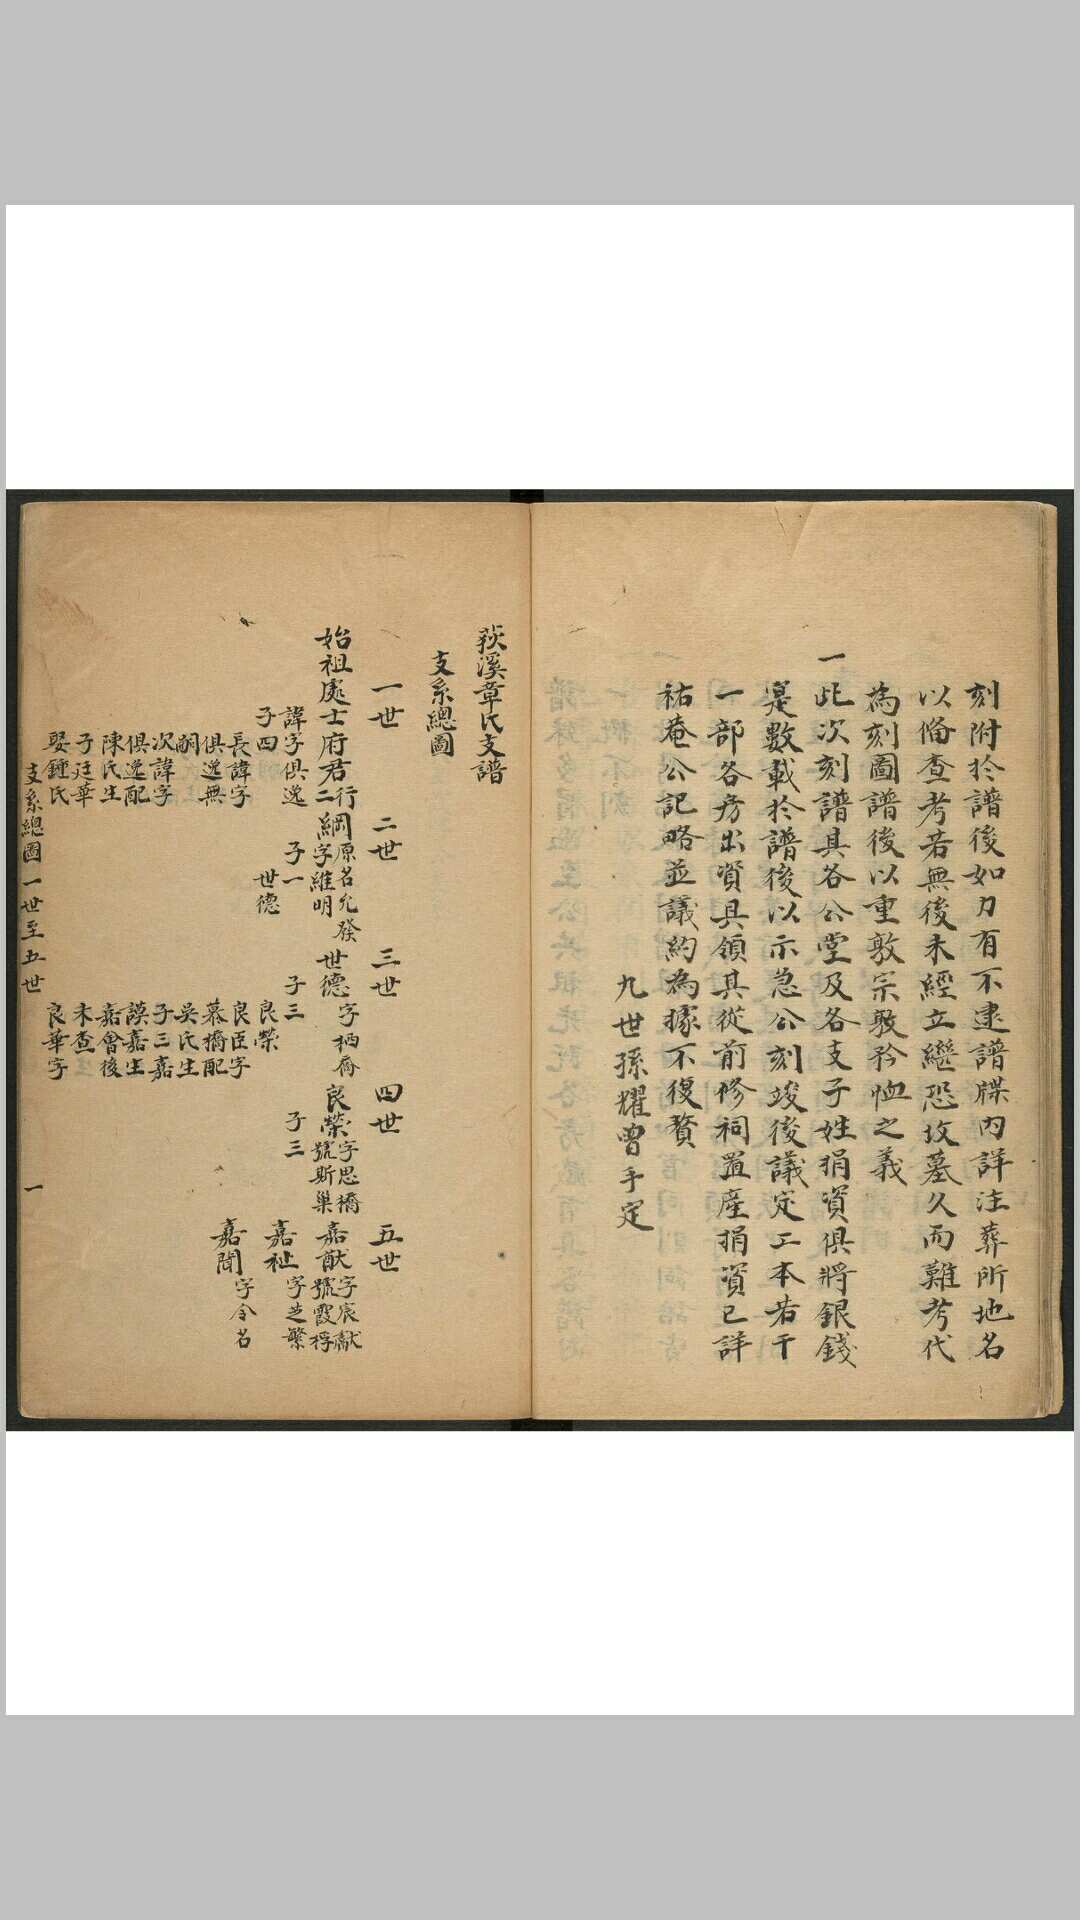 刻附於譜後如力有不逮譜牒内詳注葬所地名
以俻查考若無後未經立繼恐坟墓久而難考代
為刻圖譜後以重敦宗敦矜恤之義
一此次刻譜具各公堂及各支子姓捐資俱將銀錢
寔數載於譜後以示急公刻竣後議定工本若干
一部各房出資具領其從前修祠置産捐資已詳
祐菴公記略並議約為據不復贅
九世孫耀曾手定
荻溪章氏支譜
支系總圖
一世
二世
三世
四世
五世
始祖處士府君行二
諱字俱逸
子四
長諱字
俱逸無
嗣
次諱字
俱逸配
陳氏生
子廷華
娶鍾氏
綱原名允發
字維明
子一
世德
世德字栖喬
子三
良榮
良臣字
慕橋配
吴氏生
子三嘉
謨嘉生
嘉會後
未查
良華字
良榮字思橋
號斯巢
子三
嘉猷字宸獻
號霞桴
嘉祉字芝繁
嘉聞字令名
支系總圖一世至五世
一